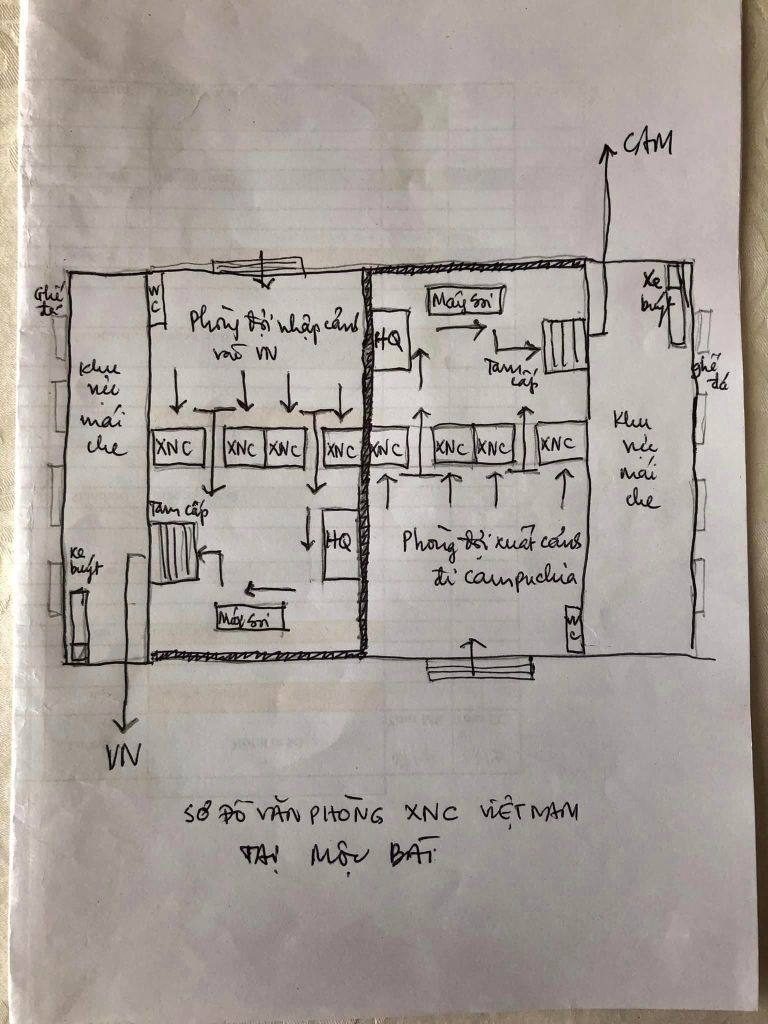 CAM
Ghế
đá
WC
Phòng đợi nhập cảnh
vào VN
Khu
vực
mái
che
XNC
XNC
XNC
XNC
Tam cấp
HQ
Xe
buýt
Máy soi
VN
Máy soi
HQ
Tam
cấp
Xe
buýt
ghế
đá
XNC
XNC
XNC
XNC
Khu
vực
mái
che
Phòng đợi xuất cảnh
đi campuchia
WC
SƠ ĐỒ VĂN PHÒNG XNC VIỆT NAM
TẠI MỘC BÀI